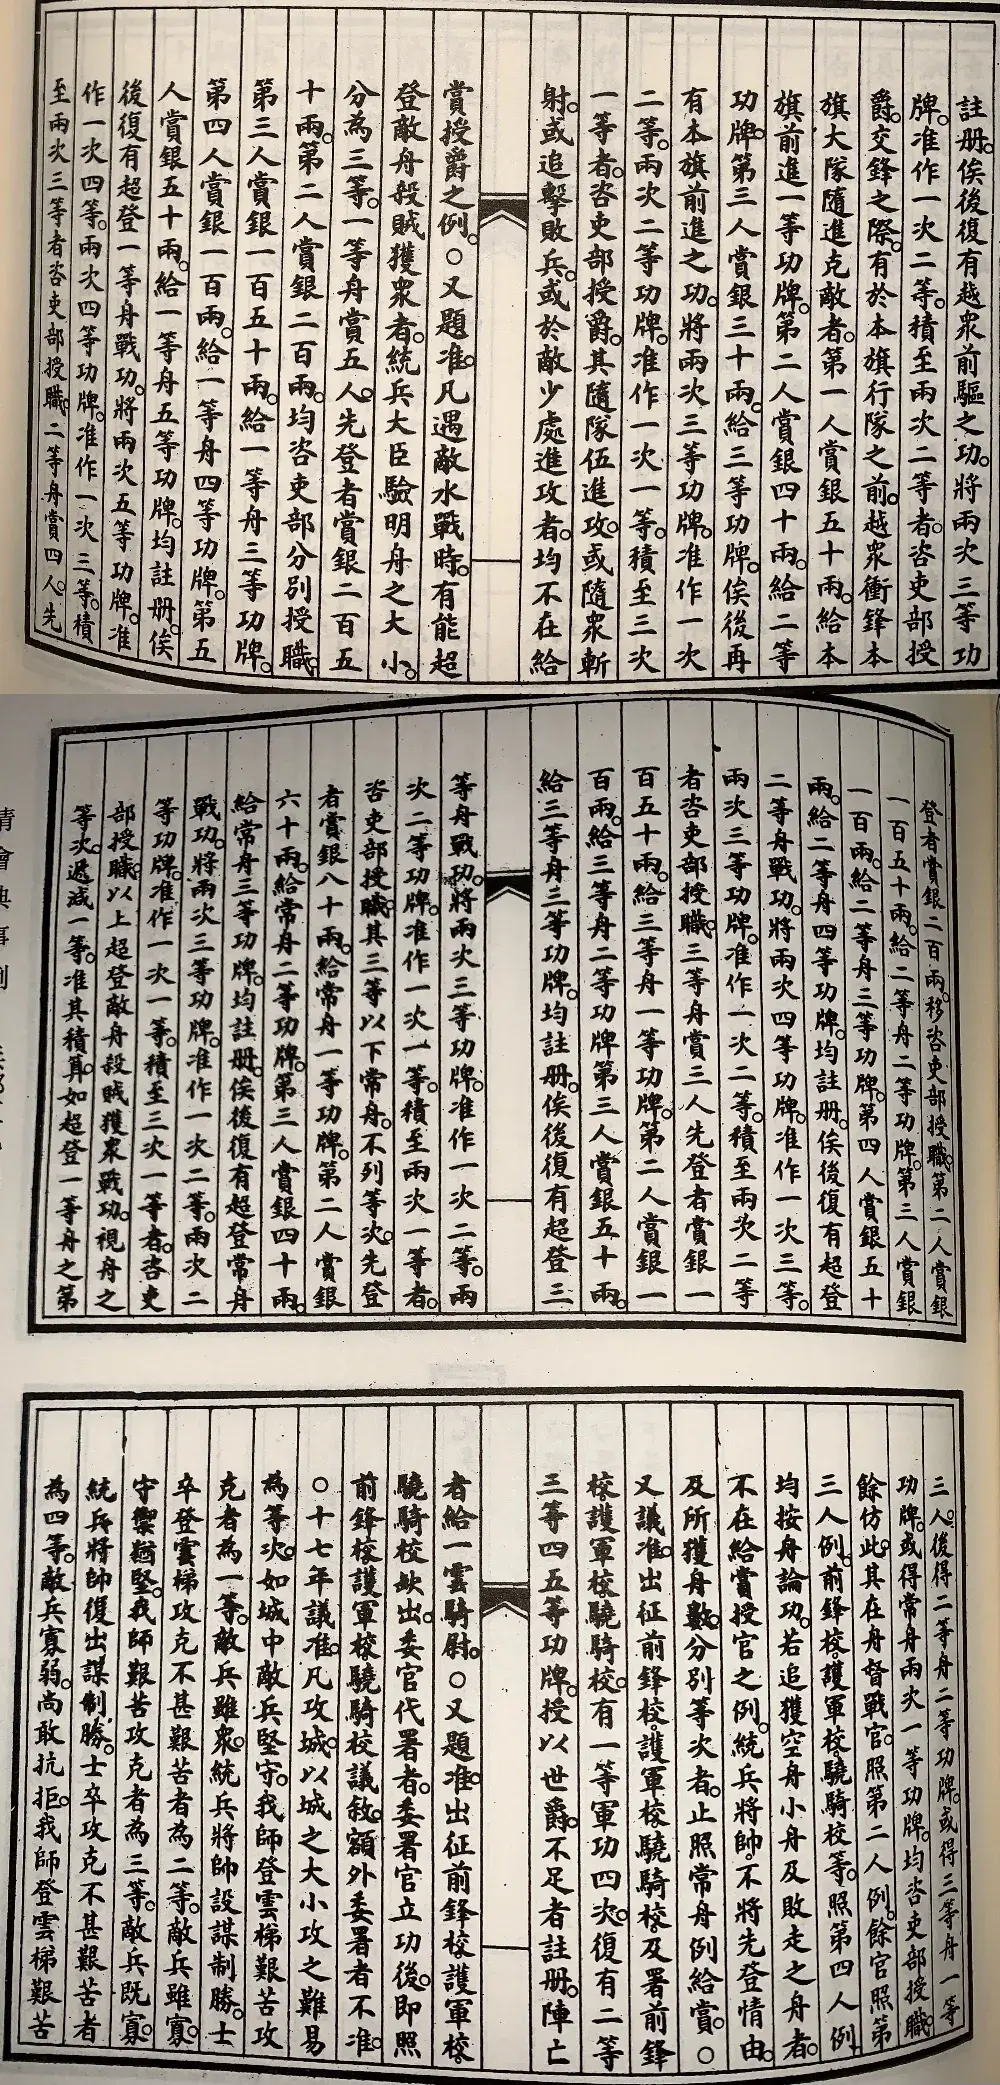 註册。俟後復有越衆前驅之功。將兩次三等功
牌。准作一次二等。積至兩次二等者。咨吏部授
爵。交鋒之際。有於本旗行隊之前。越衆衝鋒本
旗大隊隨進克敵者。第一人賞銀五十兩。給本
旗前進一等功牌。第二人賞銀四十兩。給二等
功牌。第三人賞銀三十兩。給三等功牌。俟後再
有本旗前進之功。將兩次三等功牌。准作一次
二等。兩次二等功牌。准作一次一等。積至三次
一等者。咨吏部授爵。其隨隊伍進攻。或隨衆斬
射。或追擊敗兵。或於敵少處進攻者。均不在給
賞授爵之例。○又題准。凡遇敵水戰時。有能超
登敵舟殺賊獲衆者。統兵大臣驗明舟之大小。
分為三等。一等舟賞五人。先登者賞銀二百五
十兩。第二人賞銀二百兩。均咨吏部分別授職。
第三人賞銀一百五十兩。給一等舟三等功牌。
第四人賞銀一百兩。給一等舟四等功牌。第五
人賞銀五十兩。給一等舟五等功牌。均註册。俟
後復有超登一等舟戰功。將兩次五等功牌。准
作一次四等。兩次四等功牌。准作一次三等。積
至兩次三等者咨吏部授職。二等舟賞四人。先
登者賞銀二百兩。移咨吏部授職。第二人賞銀
一百五十兩。給二等舟二等功牌。第三人賞銀
一百兩。給二等舟三等功牌。第四人賞銀五十
兩。給二等舟四等功牌。均註册。俟後復有超登
二等舟戰功。將兩次四等功牌。准作一次三等。
兩次三等功牌。准作一次二等。積至兩次二等
者咨吏部授職。三等舟賞三人先登者賞銀一
百五十兩。給三等舟一等功牌。第二人賞銀一
百兩。給三等舟二等功牌第三人賞銀五十兩。
給三等舟三等功牌。均註册。俟後復有超登三
等舟戰功。將兩次三等功牌。准作一次二等。兩
次二等功牌。准作一次一等。積至兩次一等者。
咨吏部授職。其三等以下常舟。不列等次。先登
者賞銀八十兩。給常舟一等功牌。第二人賞銀
六十兩。給常舟二等功牌。第三人賞銀四十兩。
給常舟三等功牌。均註册。俟後復有超登常舟
戰功。將兩次三等功牌。准作一次二等。兩次二
等功牌。准作一次一等。積至三次一等者。咨吏
部授職。以上超登敵舟殺賊獲衆戰功。視舟之
等次。遞減一等。准其積算。如超登一等舟之第
三人。後得二等舟二等功牌。或得三等舟一等
功牌。或得常舟兩次一等功牌。均咨吏部授職。
餘仿此。其在舟督戰官。照第二人例。餘官照第
三人例。前鋒校。護軍校。驍騎校等。照第四人例
均按舟論功。若追獲空舟小舟及敗走之舟者。
不在給賞授官之例。統兵將帥。不將先登情由。
及所獲舟數。分別等次者。止照常舟例給賞。○
又議准。出征前鋒校。護軍校。驍騎校。及署前鋒
校。護軍校驍騎校。有一等軍功四次。復有二等
三等四五等功牌。授以世爵。不足者註册。陣亡
者給一雲騎尉。○又題准。出征前鋒校護軍校。
驍騎校缺出。委官代署者。委署官立功後。即照
前鋒校。護軍校驍騎校議敘。額外委署者不准。
○十七年議准。凡攻城。以城之大小攻之難易
為等次。如城中敵兵堅守。我師登雲梯艱苦攻
克者為一等。敵兵雖衆。統兵將帥設謀制勝。士
卒登雲梯攻克不甚艱苦者為二等。敵兵雖寡。
守禦猶堅。我師艱苦攻克者為三等。敵兵既寡。
統兵將帥復出謀制勝。士卒攻克不甚艱苦者
為四等。敵兵寡弱。尚敢抗拒。我師登雲梯艱苦
清會典事例